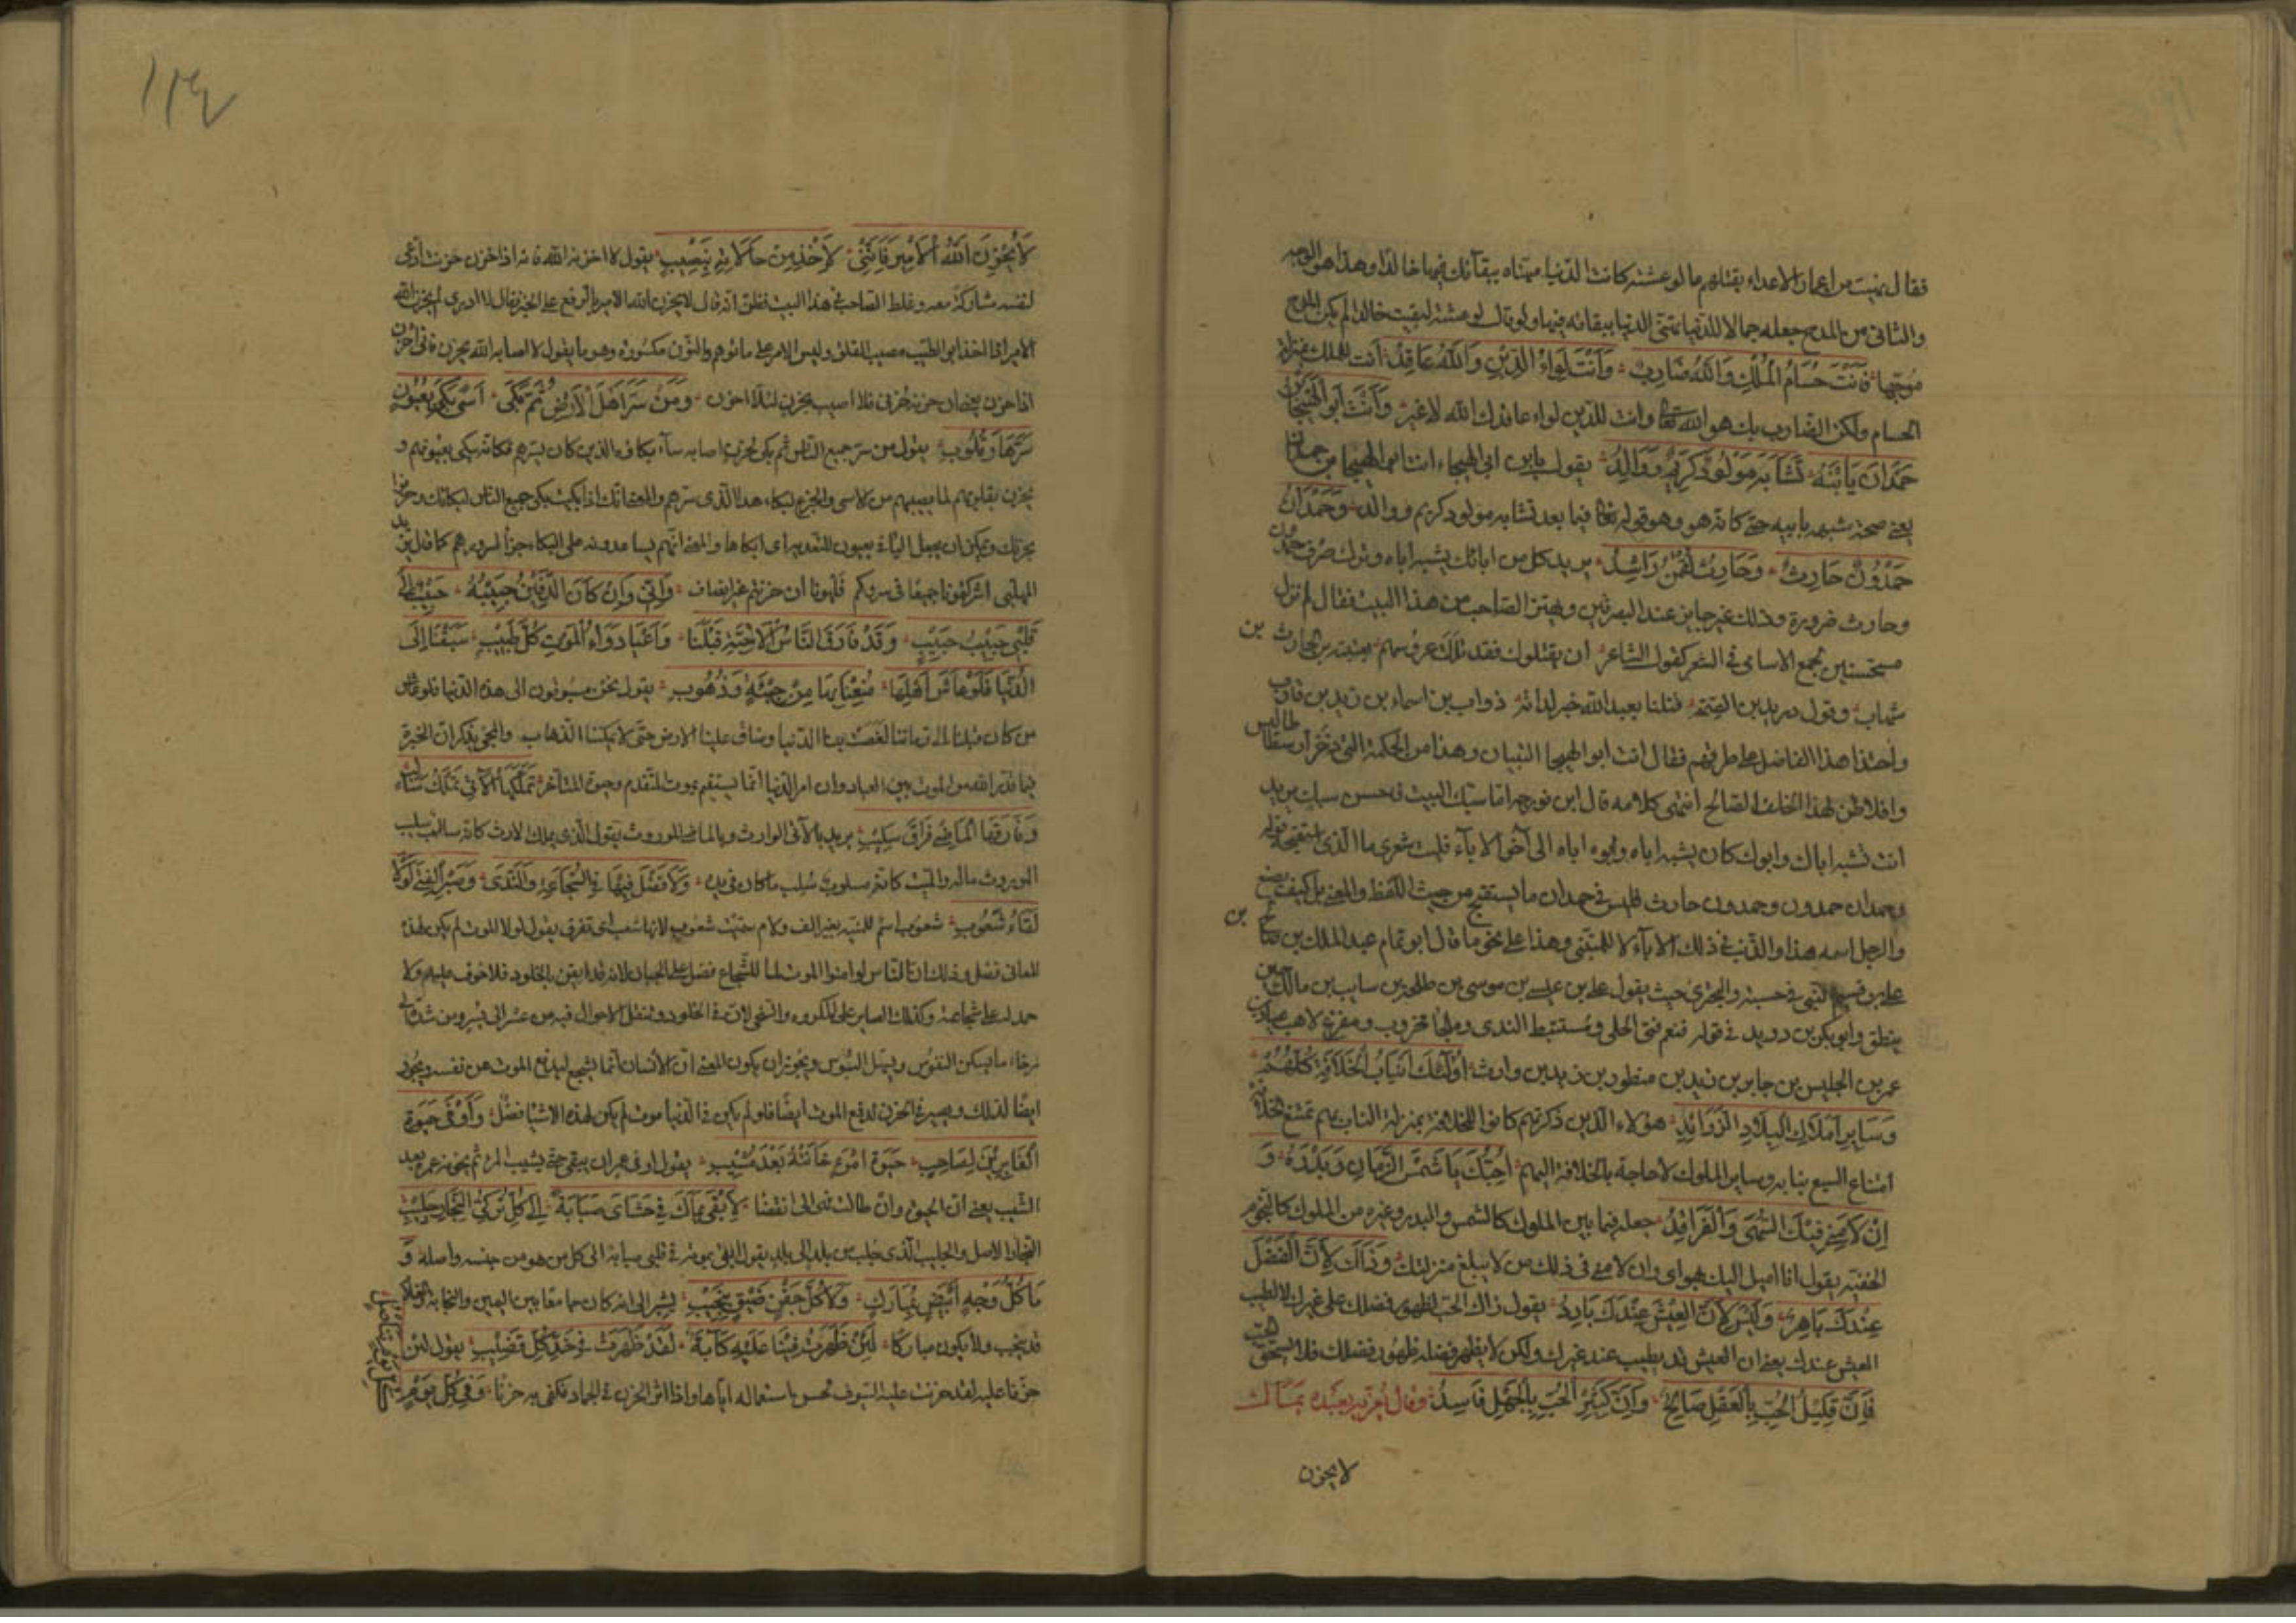 فقال نهبت من اعمار الاعداء بقتلهم ما لو عشته كانت الدنيا مهناه ببقائك فيها خالدا وهذا هو الوجه
والثانى من المدح جعله جمالا للدنيا تهنى الدنيا ببقائه فيها ولو قال لو عشته لبقيت خالدا لم يكن المدح
موجها فَاَنْتَ حُسَامُ الْمُلْكِ وَاللهُ ضَارِبٌ وَاَنْتَ لِوَاءُ الدِّيْنِ وَاللهُ عَاقِدُ انت للملك بمنزلة
الحسام ولكن الضارب بك هو الله تعالى وانت للدين لواء عاقدك الله لا غير وَاَنْتَ اَبُو الْهَيْجَا بْنُ
حَمْدَانَ يَا بْنَهُ تَشَابَهَ مَوْلُوْدٌ كَرِيْمٌ وَوَالِدُ يقول يابن ابى الهيجاء انت ابو الهيجا بن حمدان
يعنى صحة شبهه بابيه حتى كانه هو وهو قوله فيما بعد تشابه مولود كريم ووالد وَحَمْدَانُ
حَمْدُوْنٌ وَحَمْدُوْنُ حَارِثٌ وَحَارِثُ لُقْمَنٌ رَاشِدُ يريد كل من ابائك يشبه اباه وترك صرف حمدون
وحارث ضرورة وذلك غير جايز عند البصريين ويهتز الصاحب من هذا البيت فقال لم نزل
مستحسنين لجمع الاسامى فى الشعر كقول الشاعر ان يقتلوك فقد ثللت عروشهم بعتيبة بن الحارث بن
شهاب وقول دريد بن الصمة قتلنا بعبد الله خير لداته ذواب بن اسماء بن زيد بن قارب
واحتذا هذا الفاضل على طرقهم فقال انت ابو الهيجا البيتان وهذا من الحكمة التى ذخر ارسطاطاليس
وافلاطن لهذا الخلف الصالح انتهى كلامه قال ابن فورجه اما سبك البيت فحسن سبك يريد
انت تشبه اباك وابوك كان يشبه اباه وابوه اباه الى آخر الاباء فليت شعرى ما الذى استقبحه
وحمدان حمدون وحمدون حارث فليس فى حمدان ما يستقبح من حيث اللفظ والمعنى بل كيف يصنع
والرجل اسمه هذا والذنب فى ذلك الاباء لا للمتنبى وهذا على نحو ما قال ابو تمام عبد الملك بن صالح بن
على بن قسيم النبى فى حسبه والبحترى حيث يقول على بن عيسى بن موسى بن طلحة بن سايب بن مالك حين
ينطق وابو بكر بن دريد فى قوله فنعم فتى الجلى ومستنبط الندى وملجا محروب ومفزع لاهب عباد بن
عمر بن الجليس بن جابر بن زيد بن منظور بن زيد بن وارث اُولٰئِكَ اَنْيَابُ الْخَلَافَةِ كُلُّهُمْ
وَسَايِرُ اَمْلَاكِ الْبِلَادِ الزَّوَائِدُ هؤلاء الذين ذكرتهم كانوا للخلافة بمنزلة الناب بهم تمتنع الخلافة
امتناع السبع بنابه وساير الملوك لا حاجة بالخلافة اليهم اُحِبُّكَ يَا شَمْسَ الزَّمَانِ وَبَدْرَهُ وَ
اِنْ لَامَنِىْ فِيْكَ السُّهَى وَالْفَرَاقِدُ جعله فيما بين الملوك كالشمس والبدر وغيره من الملوك كالنجوم
الخفية يقول انا اميل اليك بهواى وان لامنى فى ذلك من لا يبلغ منزلتك وَذَاكَ لِاَنَّ الْفَضْلَ
عِنْدَكَ بَاهِرٌ وَلَيْسَ لِاَنَّ الْعَيْشَ عِنْدَكَ بَارِدُ يقول ذاك الحب لظهور فضلك على غيرك لا لطيب
العيش عندك يعنى ان العيش قد يطيب عند غيرك ولكن لا يظهر فضله ظهور فضلك فلا يستحق الحب
فَاِنَّ قَلِيْلَ الْحُبِّ بِالْعَقْلِ صَالِحٌ وَاِنَّ كَثِيْرَ الْحُبِّ بِالْجَهْلِ فَاسِدُ وقال يعزيه بعبده يماك
لا يحزن
١٣٤
لَا يُحْزِنِ اللهُ الْاَمِيْرَ فَاِنَّنِىْ لَآخُذُ مِنْ حَالَاتِهِ بِنَصِيْبِ يقول لا احزنه الله فانه اذا حزن حزنت ادعى
لنفسه مشاركة معه وغلط الصاحب فى هذا البيت فظن انه قال لا يحزن الله الامير بالرفع على الخبر فقال لا ادرى لم يحزن الله
الامير اذا اخذ ابو الطيب نصيب القلق وليس الامر على ما توهم والنون مكسورة وهو دعا يقول لا اصابه الله بحزن فانى احزن
اذا حزن يعنى ان حزنه حزنى فلا اصيب بحزن لئلا احزن وَمَنْ سَرَّ اَهْلَ الْاَرْضِ ثُمَّ بَكَى اَسًى بَكَى بِعُيُوْنٍ
سَرَّهَا وَقُلُوْبِ يقول من سر جميع الناس ثم بكى لحزن اصابه ساء بكاؤه الذين كان يسرهم فكانه يبكى بعيونهم و
يحزن بقلوبهم لما يصيبهم من الاسى والجزع لبكاء هذا الذى سرهم والمعنى انك اذا بكيت بكى جميع الناس لبكائك وحزنوا
بحزنك ويمكن ان يجعل الباء فى بعيون للتعدية اى ابكاها والمعنى انهم يساعدونه على البكاء جزاء لسروره كما قال يزيد
المهلبى اشركتمونا جميعا فى سروركم فلهونا ان حزنتم غير انصاف وَاِنِّىْ وَاِنْ كَانَ الدَّفِيْنُ حَبِيْبَهُ حَبِيْبٌ اِلَى
قَلْبِىْ حَبِيْبُ حَبِيْبِ وَقَدْ فَارَقَ النَّاسُ الْاَحِبَّةَ قَبْلَنَا وَاَعْيَا دَوَاءُ الْمَوْتِ كُلَّ طَبِيْبِ سُبِقْنَا اِلَى
الدُّنْيَا فَلَوْ عَاشَ اَهْلُهَا مُنِعْنَا بِهَا مِنْ جِيْئَةٍ وَذُهُوْبِ يقول نحن مسبوقون الى هذه الدنيا فلو عاش
من كان قبلنا الى زماننا لغصت بنا الدنيا وضاقت علينا الارض حتى لا يمكننا الذهاب والمجى يذكر ان الخيرة
فيما قدر الله من الموت بين العباد وان امر الدنيا انما يستقيم بموت المتقدم وحيوة المتاخر تَمَلَّكَهَا الْآتِىْ تَمَلُّكَ سَالِبٍ
وَفَارَقَهَا الْمَاضِىْ فِرَاقَ سَلِيْبِ يريد بالآتى الوارث وبالماضى الموروث يقول الذى يملك الارث كانه سالب سلب
الموروث ماله والميت كانه مسلوب سلب ما كان فى يده وَلَا فَضْلَ فِيْهَا لِلشَّجَاعَةِ وَالنَّدَى وَصَبْرِ الْفَتَى لَوْلَا
لِقَاءُ شَعُوْبِ شعوب اسم للمنية بغير الف ولام سميت شعوب لانها تشعب اى تفرق يقول لولا الموت لم يكن لهذه
المعانى فضل وذلك ان الناس لو امنوا الموت لما للشجاع فضل على الجبان لانه قد ايقن بالخلود فلا خوف عليهم ولا
حمد له على شجاعته وكذلك الصابر على المكروه والسخى لان فى الخلود وتنقل الاحوال فيه من عسر الى يسر ومن شدة الى
رخاء ما يسكن النفوس ويسهل البؤس ويجوز ان يكون المعنى ان الانسان انما يشجع ليدفع الموت عن نفسه ويجود
ايضا لذلك ويصبر فى الحزن لدفع الموت ايضا فلو لم يكن فى الدنيا موت لم يكن لهذه الاشيا فضل وَاَوْفَى حَيٰوةِ
الْغَابِرِيْنَ لِصَاحِبٍ حَيٰوةُ امْرِءٍ خَانَتْهُ بَعْدَ مَشِيْبِ يقول اوفى عمر ان يبقى حتى يشيب المرء ثم يخونه عمره بعد
الشيب يعنى ان الحيوة وان طالت فهى الى انقضا لَاَبْقَى يَمَاكٌ فِىْ حَشَاىَ صَبَابَةً اِلَى كُلِّ تُرْكِىِّ النِّجَارِ جَلِيْبِ
النجار الاصل والجليب الذى جلب من بلد الى بلد يقول ابقى بموته فى قلبى صبابة الى كل من هو من جنسه واصله وَ
مَا كُلُّ وَجْهٍ اَبْيَضٍ بِمُبَارَكٍ وَلَا كُلُّ جَفْنٍ ضَيِّقٍ بِنَجِيْبِ يشير الى انه كان جامعا بين اليمن والنجابة والغلام
قد ينجب ولا يكون مباركا لَئِنْ ظَهَرَتْ فِيْنَا عَلَيْهِ كَآبَةٌ لَقَدْ ظَهَرَتْ فِىْ حَدِّ كُلِّ قَضِيْبِ يقول لئن
حزنا عليه لقد حزنت عليه السيوف لحسن استعماله اياها واذا اثر الحزن فى الجماد فكفى به حزنا وَفِىْ كُلِّ قَوْسٍ